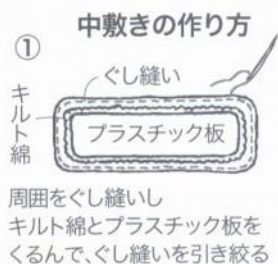 中敷きの作り方
①
ぐし縫い
キルト綿
プラスチック板
周囲をぐし縫いし
キルト綿とプラスチック板を
くるんで、ぐし縫いを引き絞る